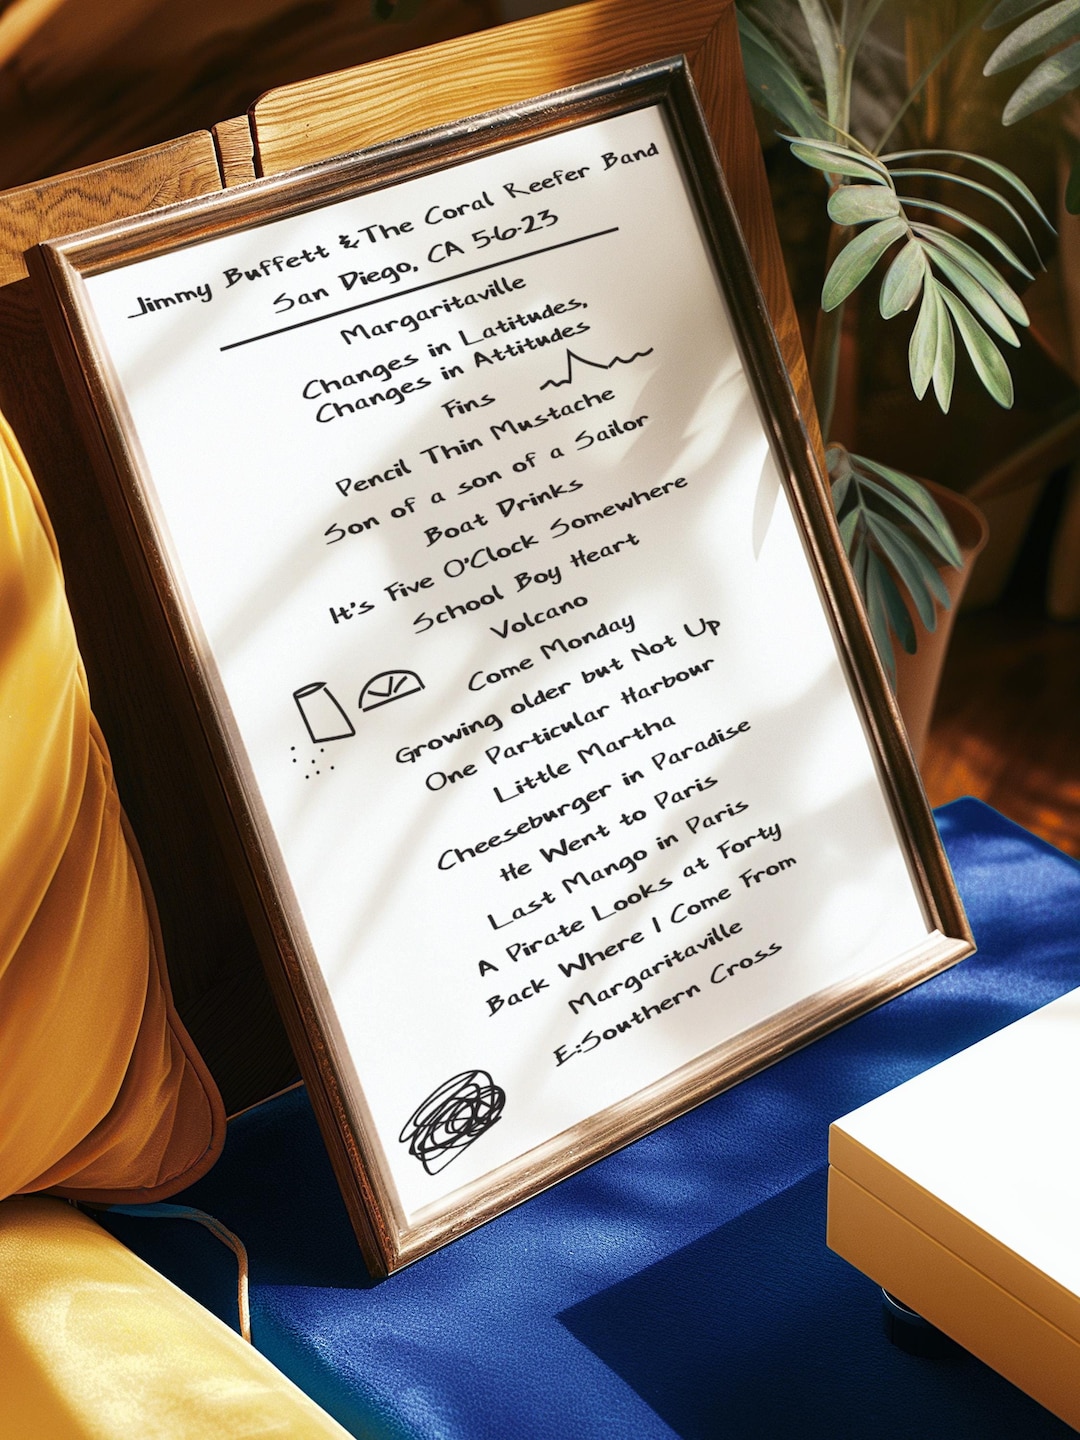 Jimmy Buffett & The Coral Reefer Band
San Diego, CA 5-6-23
Margaritaville
Changes in Latitudes,
Changes in Attitudes
Fins
Pencil Thin Mustache
Son of a son of a Sailor
Boat Drinks
It's Five O'Clock Somewhere
School Boy Heart
Volcano
Come Monday
Growing older but Not Up
One Particular Harbour
Little Martha
Cheeseburger in Paradise
He Went to Paris
Last Mango in Paris
A Pirate Looks at Forty
Back Where I Come From
Margaritaville
E:Southern Cross